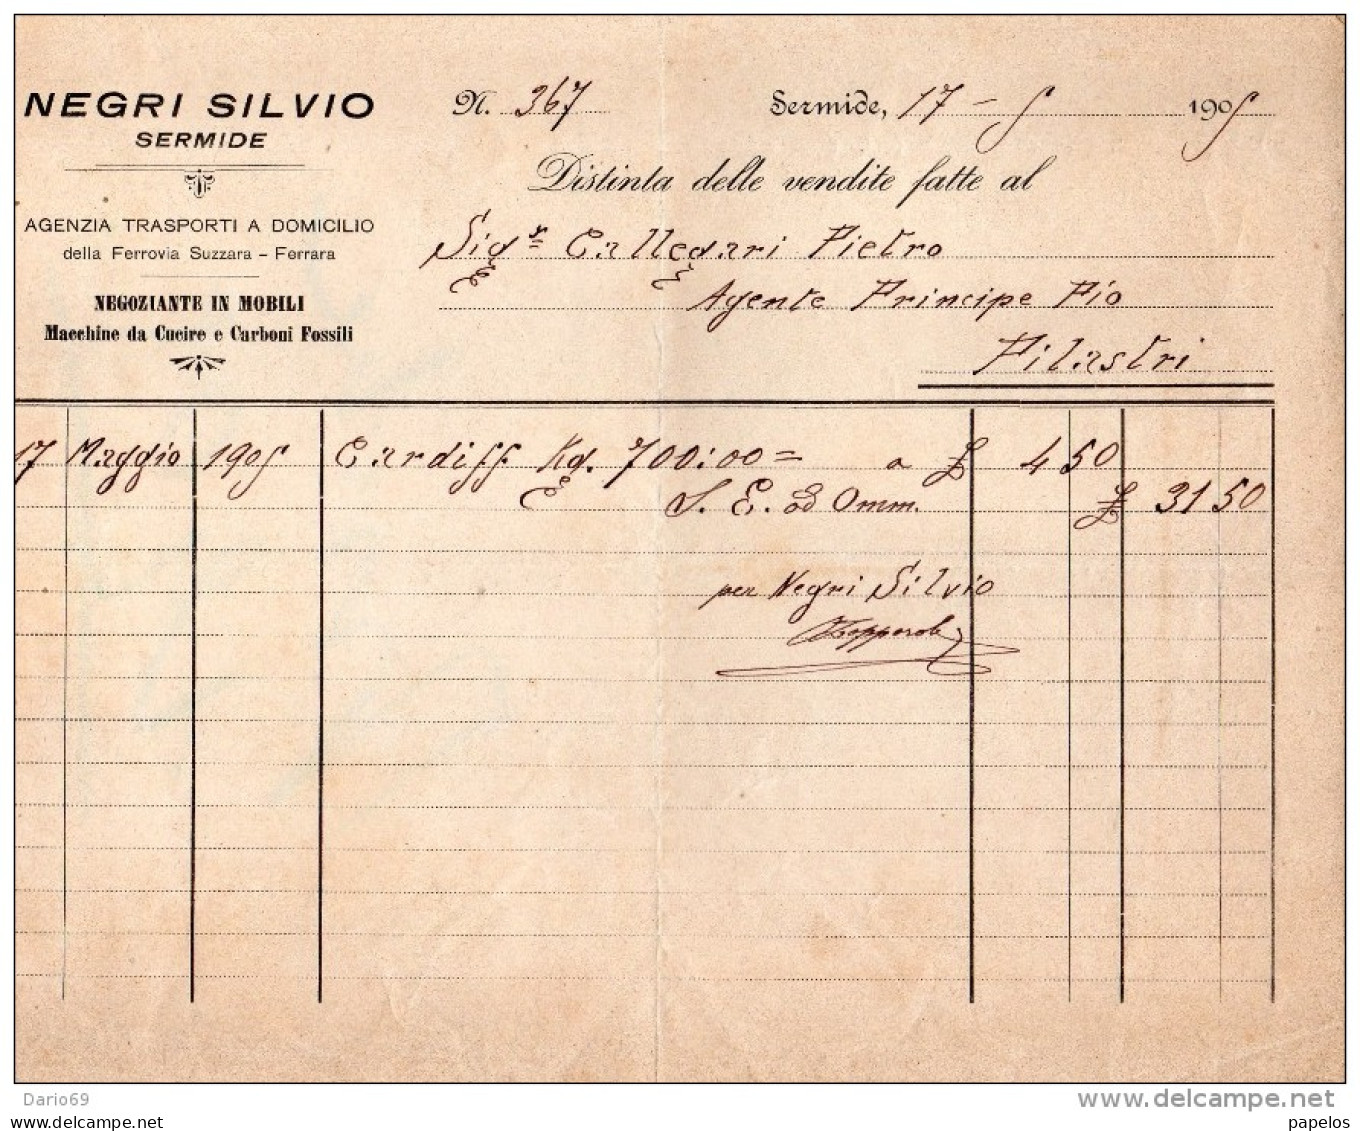 NEGRI SILVIO
SERMIDE
AGENZIA TRASPORTI A DOMICILIO
della Ferrovia Suzzara - Ferrara
NEGOZIANTE IN MOBILI
Macchine da Cucire e Carboni Fossili
N. 367 Sermide, 17 - 5 1905
Distinta delle vendite fatte al
Sigr Callegari Pietro
Agente Principe Pio
Pilastri
17 Maggio 1905 Cardiff Kg. 700:00= a £ 4 50
S. E. ed Omm. £ 31 50
per Negri Silvio
Dario69
delcampe.net
papelos